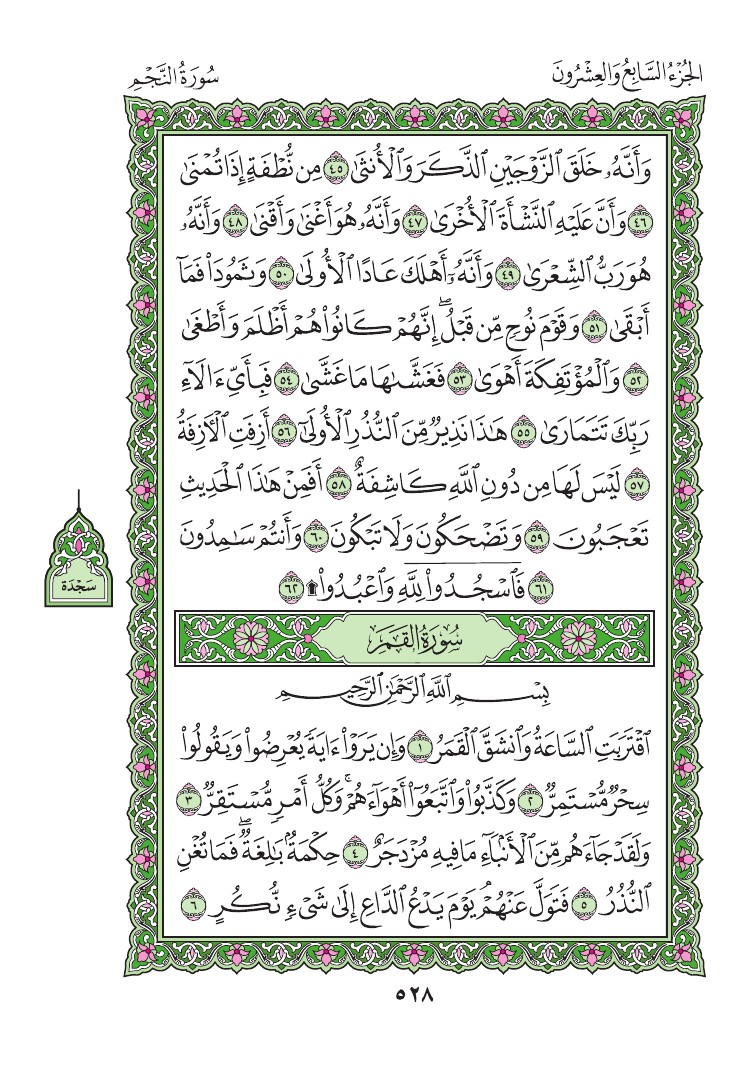 الجُزْءُ السَّابِعُ وَالعِشْرُونَ
سُورَةُ النَّجْمِ
وَأَنَّهُۥ خَلَقَ ٱلزَّوْجَيْنِ ٱلذَّكَرَ وَٱلْأُنثَىٰ ٤٥ مِن نُّطْفَةٍ إِذَا تُمْنَىٰ
٤٦ وَأَنَّ عَلَيْهِ ٱلنَّشْأَةَ ٱلْأُخْرَىٰ ٤٧ وَأَنَّهُۥ هُوَ أَغْنَىٰ وَأَقْنَىٰ ٤٨ وَأَنَّهُۥ
هُوَ رَبُّ ٱلشِّعْرَىٰ ٤٩ وَأَنَّهُۥٓ أَهْلَكَ عَادًا ٱلْأُولَىٰ ٥٠ وَثَمُودَا۟ فَمَآ
أَبْقَىٰ ٥١ وَقَوْمَ نُوحٍ مِّن قَبْلُ ۖ إِنَّهُمْ كَانُوا۟ هُمْ أَظْلَمَ وَأَطْغَىٰ
٥٢ وَٱلْمُؤْتَفِكَةَ أَهْوَىٰ ٥٣ فَغَشَّىٰهَا مَا غَشَّىٰ ٥٤ فَبِأَىِّ ءَالَآءِ
رَبِّكَ تَتَمَارَىٰ ٥٥ هَـٰذَا نَذِيرٌ مِّنَ ٱلنُّذُرِ ٱلْأُولَىٰٓ ٥٦ أَزِفَتِ ٱلْـَٔازِفَةُ
٥٧ لَيْسَ لَهَا مِن دُونِ ٱللَّهِ كَاشِفَةٌ ٥٨ أَفَمِنْ هَـٰذَا ٱلْحَدِيثِ
تَعْجَبُونَ ٥٩ وَتَضْحَكُونَ وَلَا تَبْكُونَ ٦٠ وَأَنتُمْ سَـٰمِدُونَ
٦١ فَٱسْجُدُوا۟ لِلَّهِ وَٱعْبُدُوا۟ ۩ ٦٢
سَجْدَة
سُورَةُ القَمَرِ
بِسْمِ ٱللَّهِ ٱلرَّحْمَـٰنِ ٱلرَّحِيمِ
ٱقْتَرَبَتِ ٱلسَّاعَةُ وَٱنشَقَّ ٱلْقَمَرُ ١ وَإِن يَرَوْا۟ ءَايَةً يُعْرِضُوا۟ وَيَقُولُوا۟
سِحْرٌ مُّسْتَمِرٌّ ٢ وَكَذَّبُوا۟ وَٱتَّبَعُوٓا۟ أَهْوَآءَهُمْ ۚ وَكُلُّ أَمْرٍ مُّسْتَقِرٌّ ٣
وَلَقَدْ جَآءَهُم مِّنَ ٱلْأَنۢبَآءِ مَا فِيهِ مُزْدَجَرٌ ٤ حِكْمَةٌۢ بَـٰلِغَةٌ ۖ فَمَا تُغْنِ
ٱلنُّذُرُ ٥ فَتَوَلَّ عَنْهُمْ ۘ يَوْمَ يَدْعُ ٱلدَّاعِ إِلَىٰ شَىْءٍ نُّكُرٍ ٦
٥٢٨